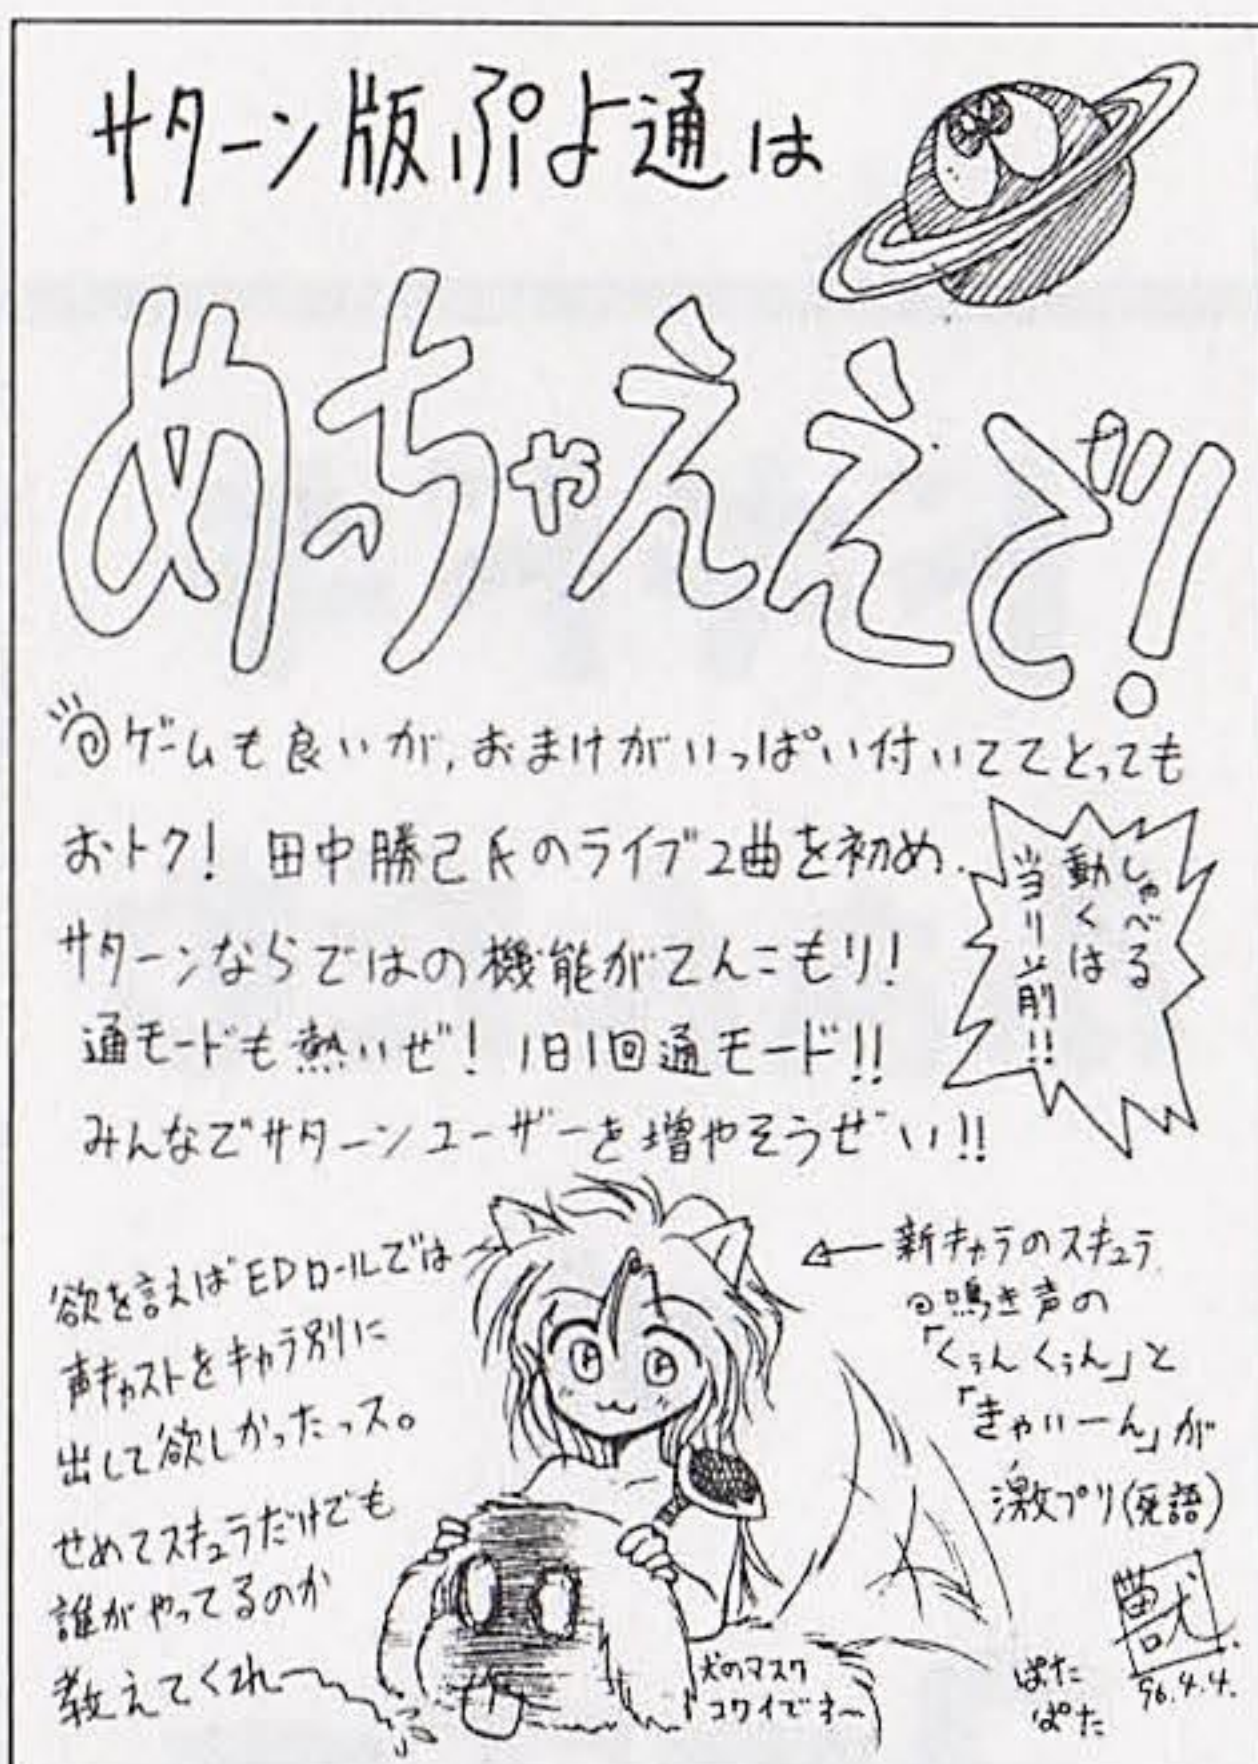 サターン版ぷよ通は
めっちゃええで!
ゲームも良いが,おまけがいっぱい付いててとっても
おトク! 田中勝己氏のライブ2曲を初め、
サターンならではの機能がてんこもり!
通モードも熱いぜ! 1日1回通モード!!
みんなでサターンユーザーを増やそうぜい!!
しゃべる
動くは
当り前!!
欲を言えばEDロールでは
声キャストをキャラ別に
出して欲しかったっス。
せめてスキュラだけでも
誰がやってるのか
教えてくれ〜
←新キャラのスキュラ
鳴き声の
「くぅんくぅん」と
「きゃいーん」が
激プリ(死語)
犬のマスク
コワイでネ〜
ぱた
ぱた
獣
96.4.4.